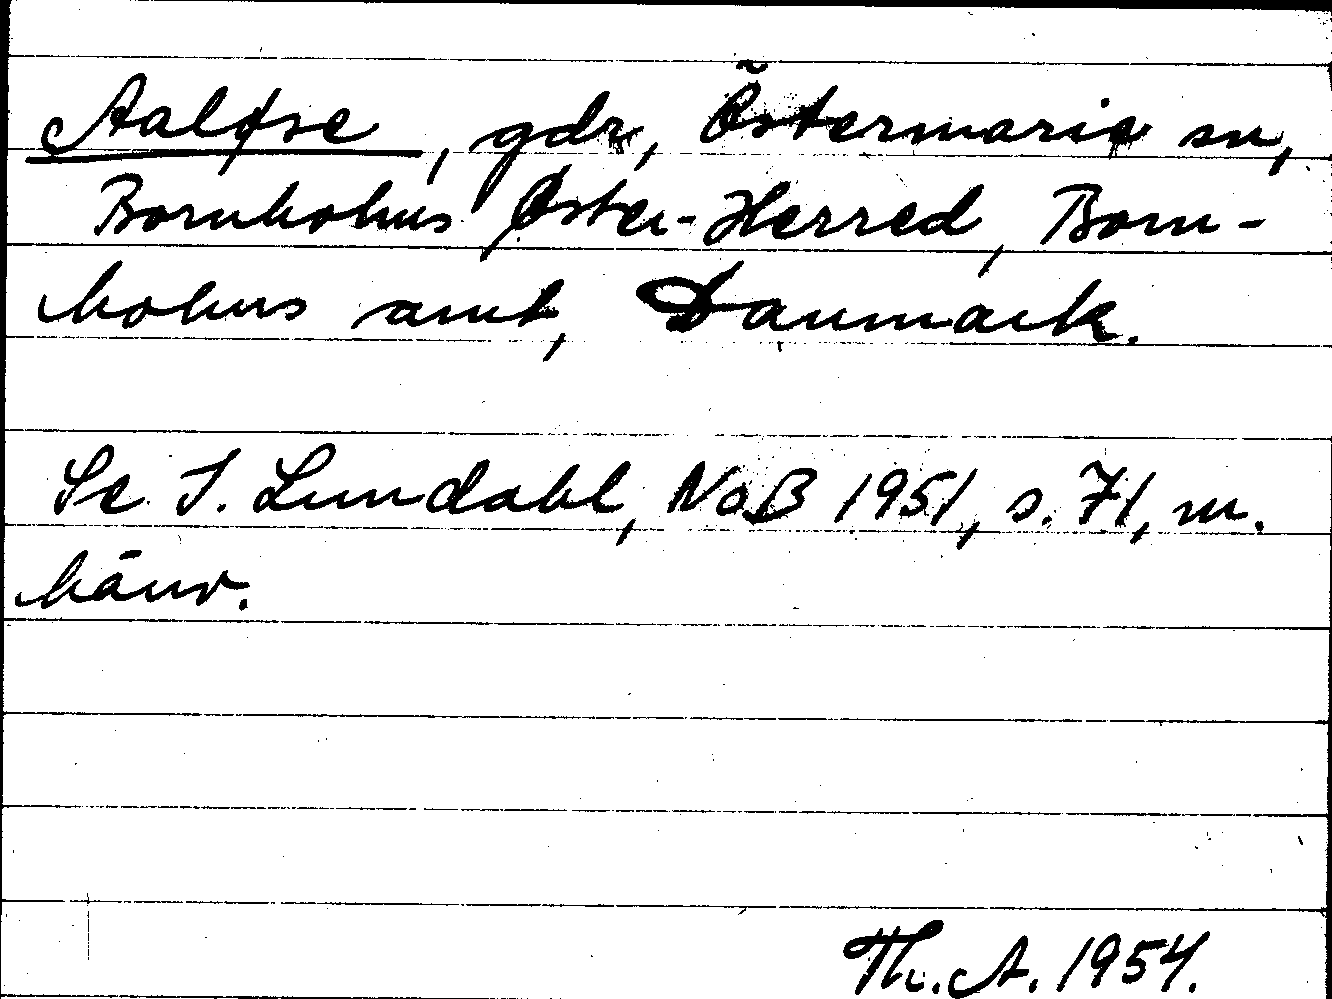 Aaløse, gdr, Östermarie sn,
Bornholms Öster-Herred, Born-
holms amt, Danmark.
Se I. Lundahl, NoB 1951, s. 71, m.
hänv.
Th. A. 1954.